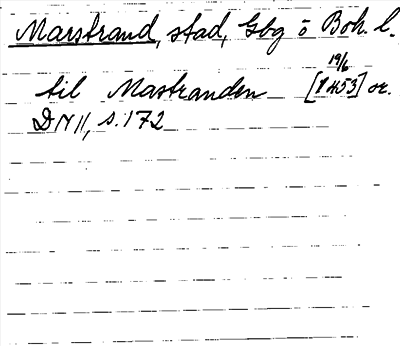 Marstrand, stad, Gbg o Boh. l.
19/6
til Mastranden [1453] or.
DN II, s. 172